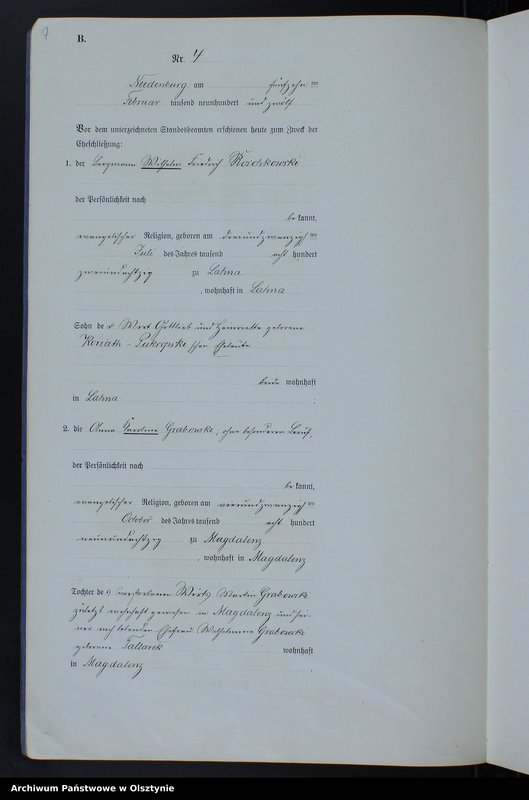 7
B.
Nr. 4
Neidenburg am fünfzehn ten
Februar tausend neunhundert und zwölf.
Vor dem unterzeichneten Standesbeamten erschienen heute zum Zweck der
Eheschließung:
1. der Bergmann Wilhelm Friedrich
der Persönlichkeit nach
be kannt,
evangelischer Religion, geboren am dreiundzwanzigs ten
Juli des Jahres tausend acht hundert
zweiundachtzig zu Lahna
, wohnhaft in Lahna
Sohn de r Wirt Gottlieb und Henriette geborene
Koriath - schen Eheleute
beide wohnhaft
in Lahna .
2. die Anna Karoline Grabowski, ohne besonderen Beruf,
der Persönlichkeit nach
be kannt,
evangelischer Religion, geboren am vierundzwanzigs ten
October des Jahres tausend acht hundert
neunundachtzig zu Magdalenz
, wohnhaft in Magdalenz
Tochter de s verstorbenen Wirts Martin Grabowski
zuletzt wohnhaft gewesen in Magdalenz und sei-
ner noch lebenden Ehefrau Wilhelmine Grabowski
geborene wohnhaft
in Magdalenz
Archiwum Państwowe w Olsztynie